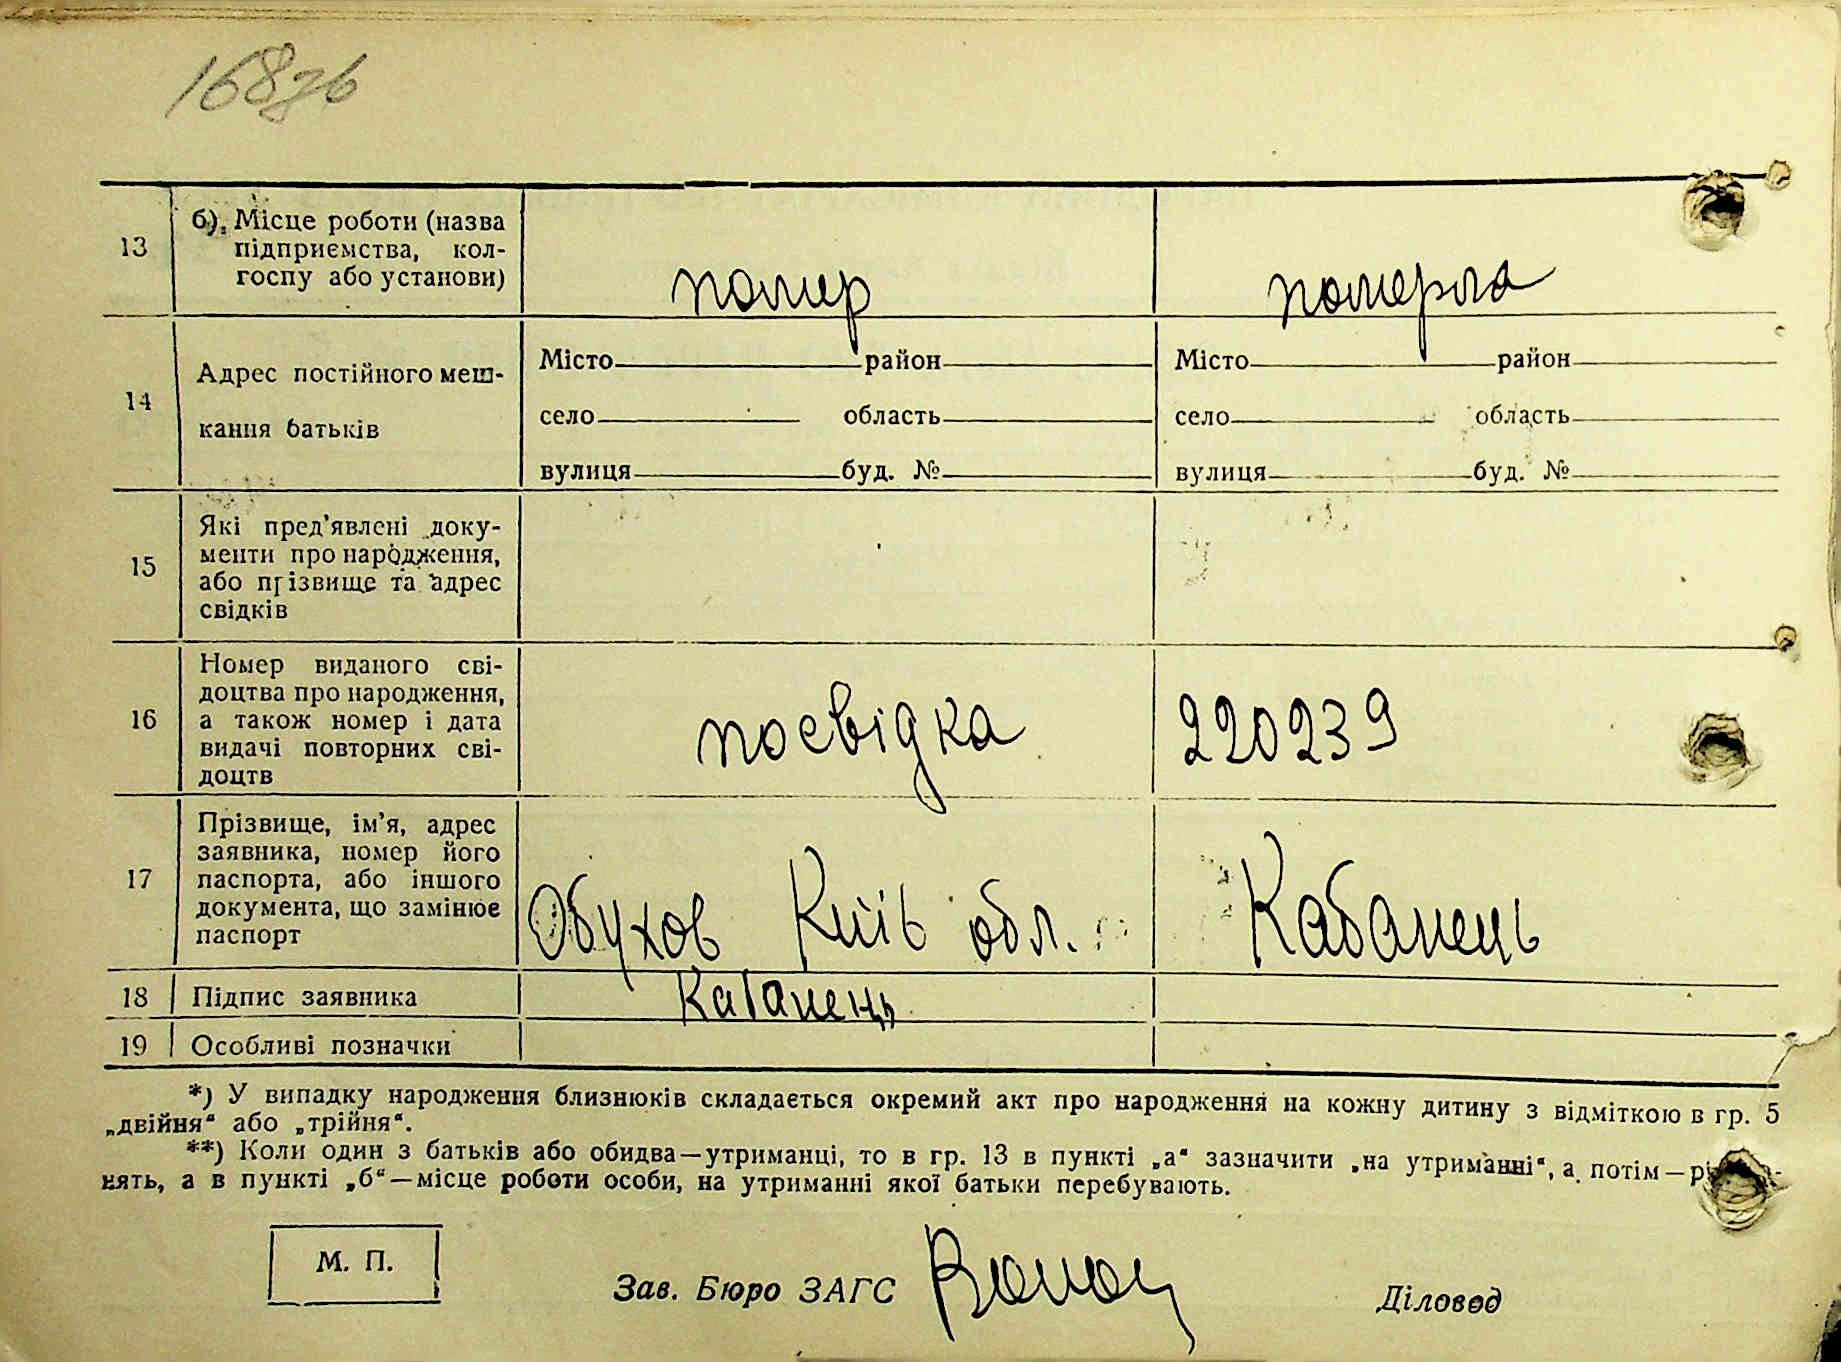 168зв
13 б) Місце роботи (назва
підприємства, кол-
госпу або установи)
помер померла
14 Адрес постійного меш-
кання батьків
Місто район Місто район
село область село область
вулиця буд. № вулиця буд. №
15 Які пред'явлені доку-
менти про народження,
або прізвище та адрес
свідків
16 Номер виданого сві-
доцтва про народження,
а також номер і дата
видачі повторних сві-
доцтв
посвідка 220239
17 Прізвище, ім'я, адрес
заявника, номер його
паспорта, або іншого
документа, що замінює
паспорт
Обухов Київ обл. Кабанець
18 Підпис заявника Кабанець
19 Особливі позначки
*) У випадку народження близнюків складається окремий акт про народження на кожну дитину з відміткою в гр. 5
„двійня“ або „трійня“.
**) Коли один з батьків або обидва—утриманці, то в гр. 13 в пункті „а“ зазначити „на утриманні“, а потім—
нять, а в пункті „б“—місце роботи особи, на утриманні якої батьки перебувають.
М. П.
Зав. Бюро ЗАГС Діловод